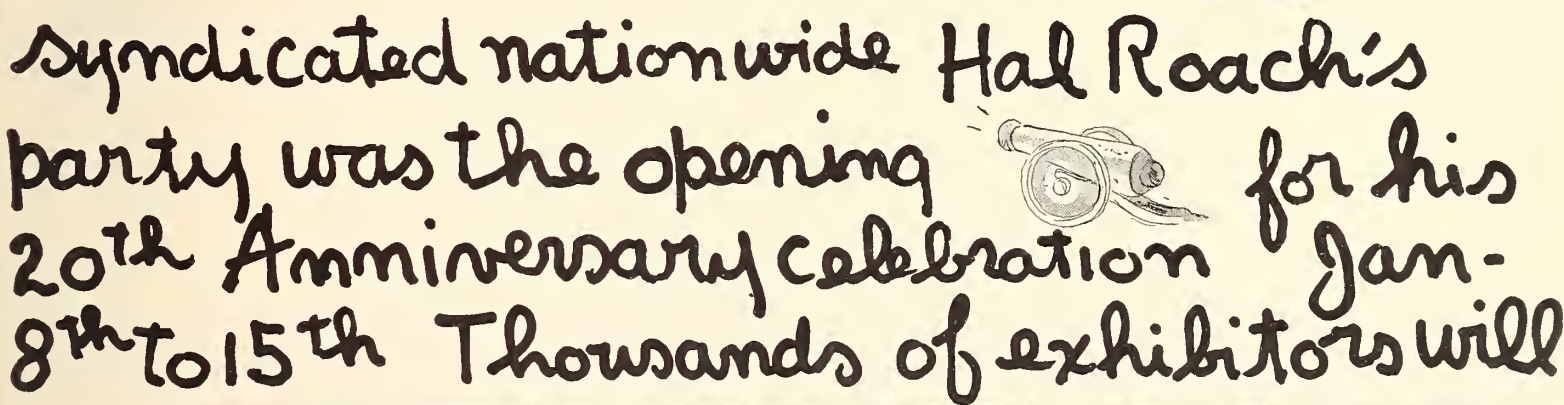 syndicated nationwide Hal Roach's
party was the opening for his
20th Anniversary celebration Jan-
8th to 15th Thousands of exhibitors will